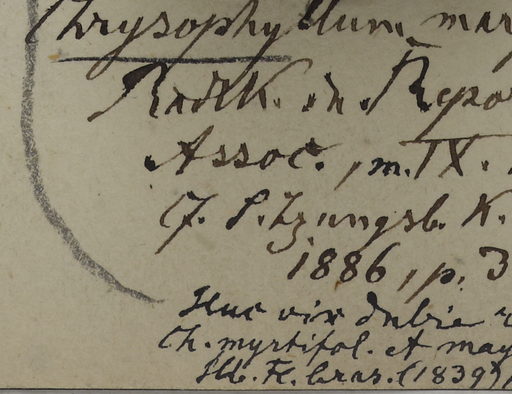 Chrysophyllum mar
Radlk. in Repor
Assoc., m. IX.
Cf. S.Izungsb. K.
1886, p. 3
Huc vix dubie
Ch. myrtifol. et may
Hb. Fl. bras. (1839)